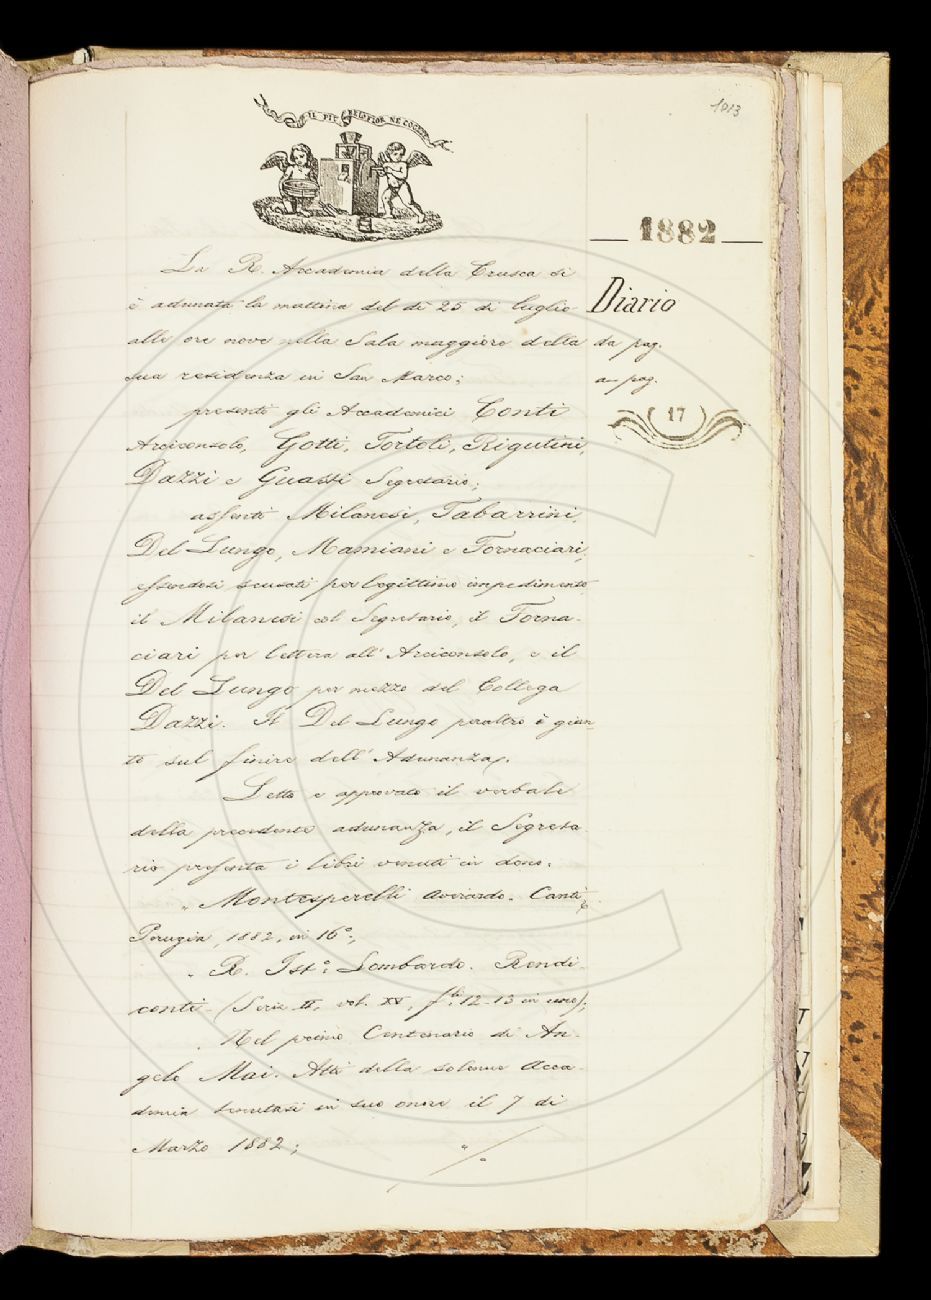 1013
IL PIÙ BEL FIOR NE COGLIE
1882
La R. Accademia della Crusca si
è adunata la mattina del dì 25 di luglio
alle ore nove nella Sala maggiore della
sua residenza in San Marco;
presenti gli Accademici Conti
Arciconsolo, Gotti, Tortoli, Rigutini,
Dazzi e Guasti Segretario;
assenti Milanesi, Tabarrini,
Del Lungo, Mamiani e Fornaciari,
essendosi scusati per legittimo impedimento
il Milanesi col Segretario, il Forna-
ciari per lettera all'Arciconsolo, e il
Del Lungo per mezzo del Collega
Dazzi. Il Del Lungo peraltro è giun-
to sul finire dell'Adunanza.
Letto e approvato il verbale
della precedente adunanza, il Segreta-
rio presenta i libri venuti in dono.
Montesperelli Averardo. Canti,
Perugia, 1882, in 16°;
R. Ist.° Lombardo. Rendi-
conti (Serie II, vol. XV, f.li 12-13 in uno);
Nel primo Centenario di An-
gelo Mai. Atti della solenne Acca-
demia tenutasi in suo onore il 7 di
Marzo 1882;
Diario
da pag.
a pag.
17